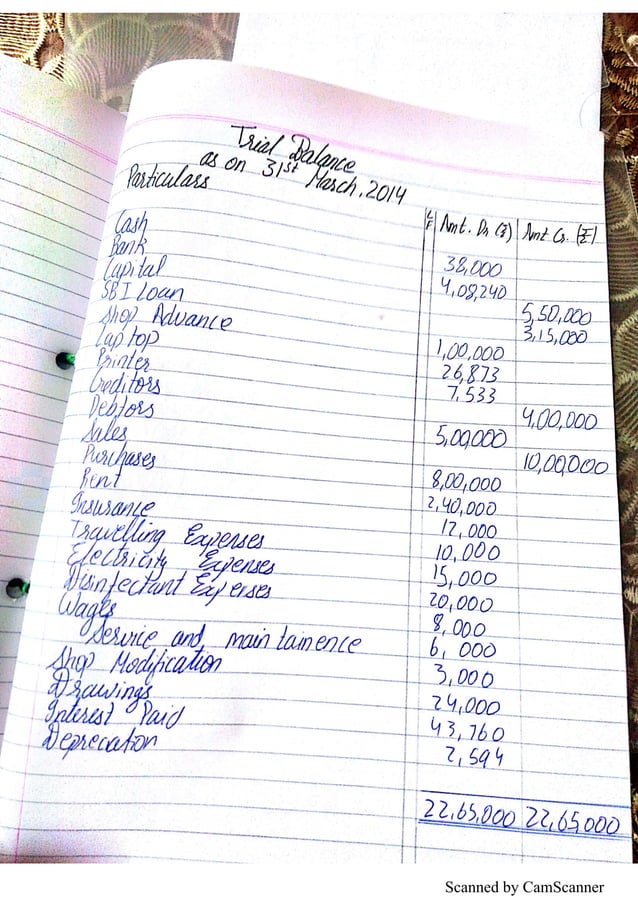 Trial Balance
as on 31st March, 2014
Particulars L/F Amt. Dr (₹) Amt Cr. (₹)
Cash 38,000
Bank 4,08,240
Capital 5,50,000
SBI Loan 3,15,000
Shop Advance 1,00,000
Laptop 26,873
Printer 7,533
Creditors 4,00,000
Debtors 5,00,000
Sales 10,00,000
Purchases 8,00,000
Rent 2,40,000
Insurance 12,000
Travelling Expenses 10,000
Electricity Expenses 15,000
Disinfectant Expenses 20,000
Wages 8,000
Service and maintainence 6,000
Shop Modification 3,000
Drawings 24,000
Interest Paid 43,760
Depreciation 2,594
22,65,000 22,65,000
Scanned by CamScanner